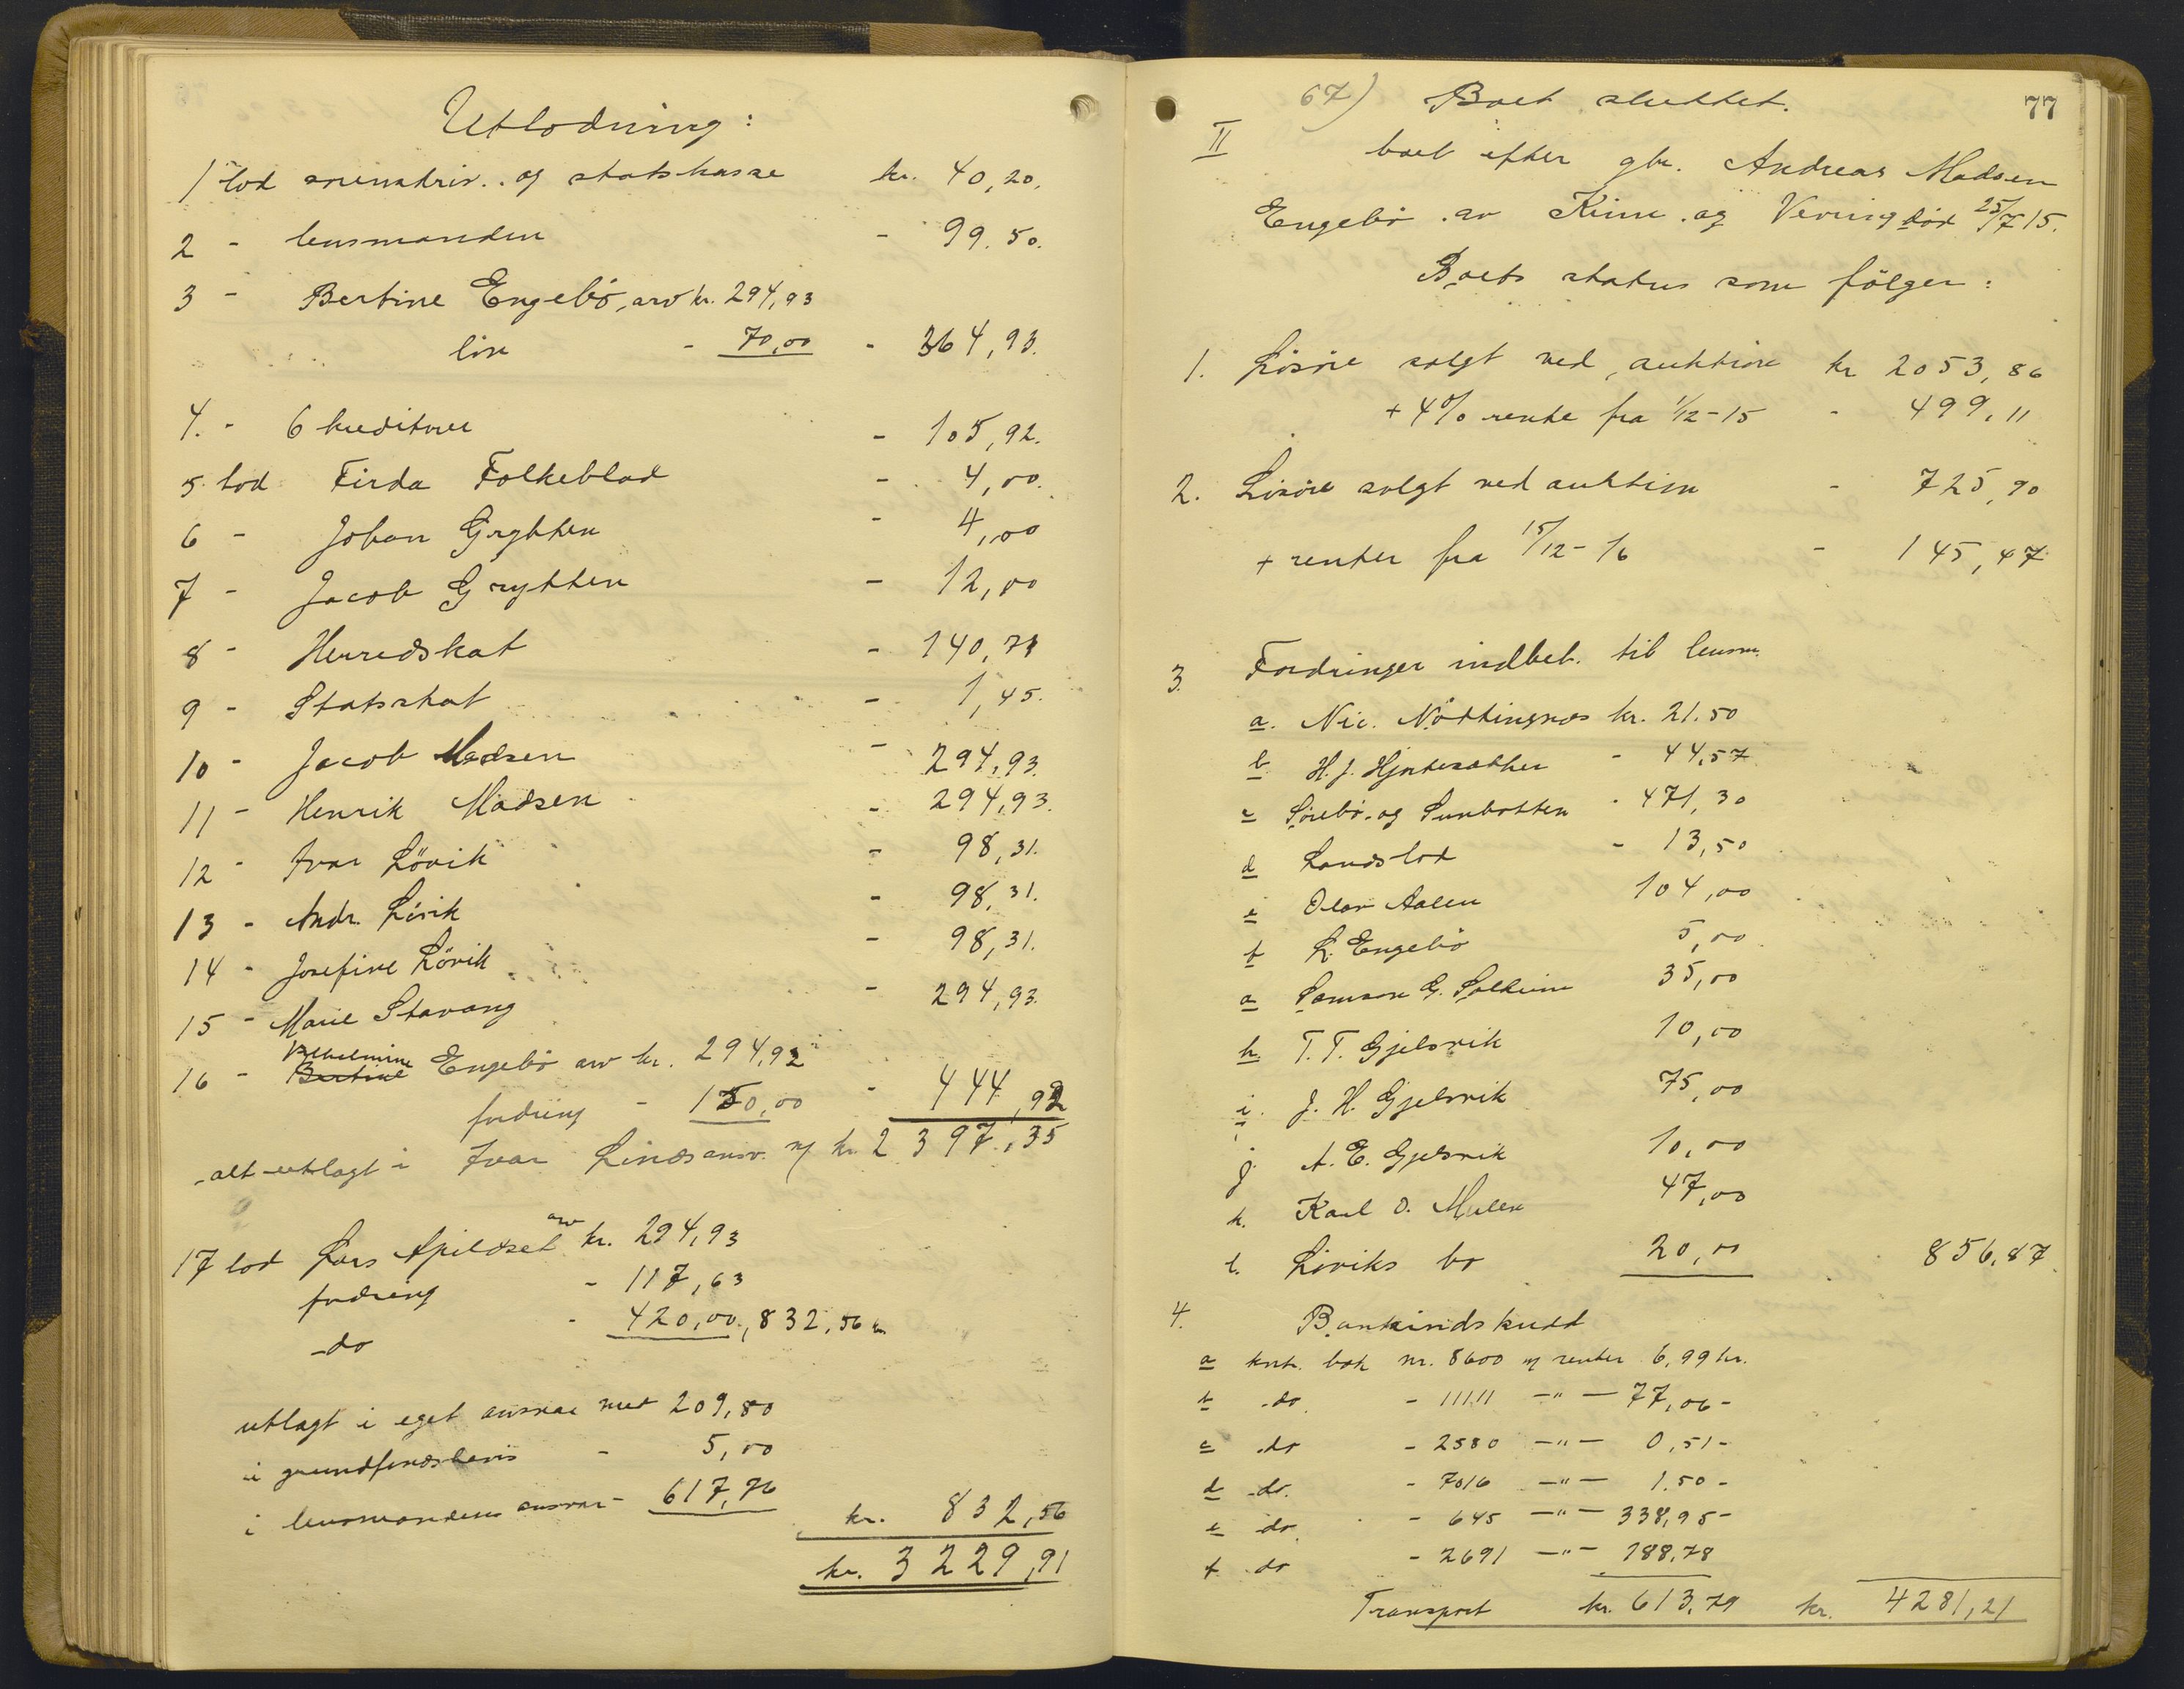 Utlodning:
1 lod sorenskriv. og statskasse kr. 40,20.
2 - lensmanden - 99.50.
3 - Bertine Engebö, arv kr. 294,93
lön - 70,00 - 364,93.
4. - 6 kreditorer - 105,92.
5. lod Firda Folkeblad - 4,00.
6 - Johan Grytten - 4,00
7 - Jacob Grytten - 12,00
8 - Herredskat - 140,71
9 - Statsskat - 1,45.
10 - Jacob Madsen - 294,93.
11 - Henrik Madsen - 294,93.
12 - Ivar Lövik - 98,31.
13 - Andr. Lövik - 98,31.
14 - Josefine Lövik - 98,31.
15 - Marie Stavang - 294,93.
Vilhelmine
16 - Bertine Engebö arv kr. 294,92
fordring - 150,00 - 444,92
alt utlagt i Ivar Linds ansv. m kr. 2397,35
17 lod Lars Apildset arv kr. 294,93
fordring - 117,63
do - 420,00, 832,56 kr.
utlagt i eget ansvar med 209,80
i grundfondsbevis - 5,00
i lensmandens ansvar - 617,76
kr. 832,56
kr. 3229,91
67) Boet sluttet. 77
II boet efter gbr. Andreas Madsen
Engebö av Kinn og Vevring död 25/7 15.
Boets status som fölger:
1. Lösöre solgt ved auktion kr 2053,86
+ 4% rente fra 1/12-15 - 499,11
2. Lösöre solgt ved auktion - 725,90
+ renter fra 15/12-16 - 145,47
3. Fordringer indbet. til lensm.
a. Nic. Nöttingnes kr. 21.50
b H. J. Hjortesæther - 44,57
c Sörebö og Sunbotten - 471,30
d Landslod - 13,50
e Olav Aalen 104,00
f L. Engebö 5,00
a Samson G. Solheim 35,00
h. T. T. Gjelsvik 10,00
i. J. H. Gjelsvik 75,00
j. A. E. Gjelsvik 10,00
k. Karl O. Mulen 47,00
l. Löviks bo 20,00 856,87
4. Bankindskudd
a kntr. bok nr. 8600 m renter 6,99 kr.
b do. - 11111 -"- 77,06-
c do - 2580 -"- 0,51-
d do. - 7016 -"- 1.50-
e do. - 645 -"- 338,95-
f do - 2691 -"- 188,78
Transport kr. 613,79 kr. 4281,21